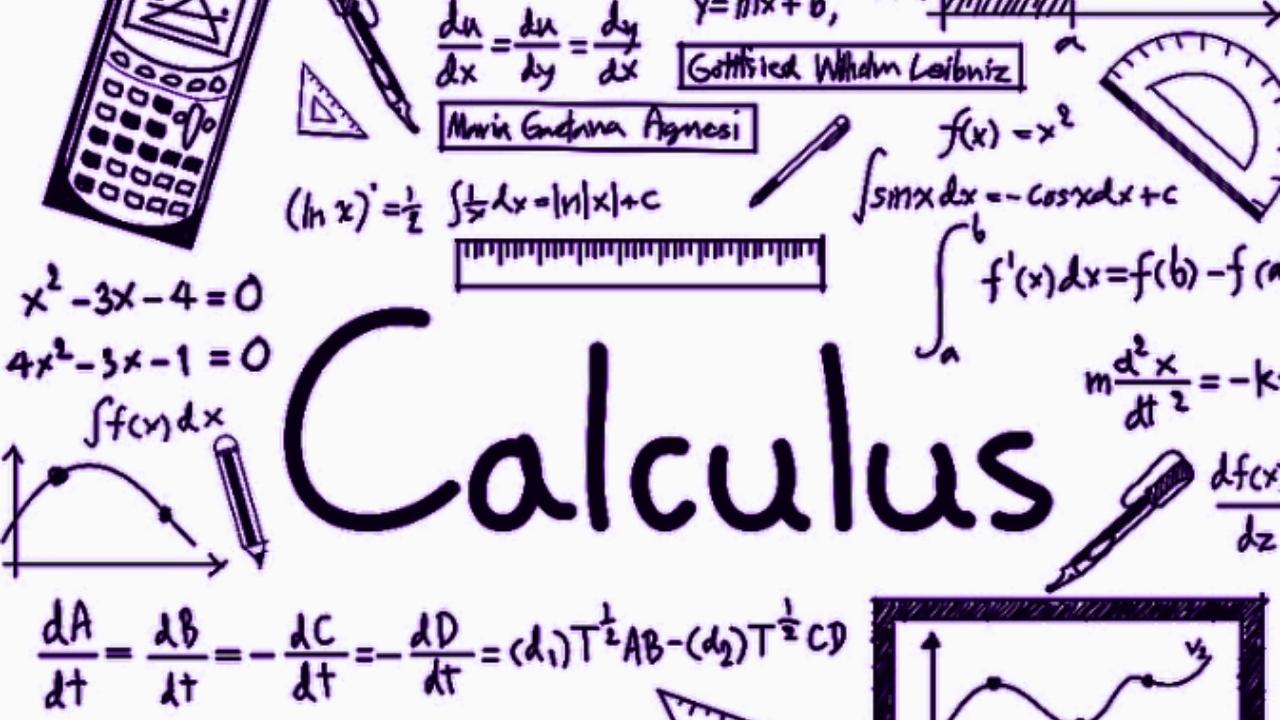 du/dx = du/dy = dy/dx
y = mx + b,
a
Gottfried Wilhelm Leibniz
Maria Gaetana Agnesi
f(x) = x²
(ln x)' = 1/2
∫ 1/x dx = ln|x| + c
∫ sinx dx = - cosxdx + c
∫ₐᵇ f'(x) dx = f(b) - f(a
x² - 3x - 4 = 0
4x² - 3x - 1 = 0
m d²x/dt² = -k
∫ f(x) dx
Calculus
df(x)/dz
dA/dt = dB/dt = - dC/dt = - dD/dt = (d₁)T^½ AB - (d₂)T^½ CD